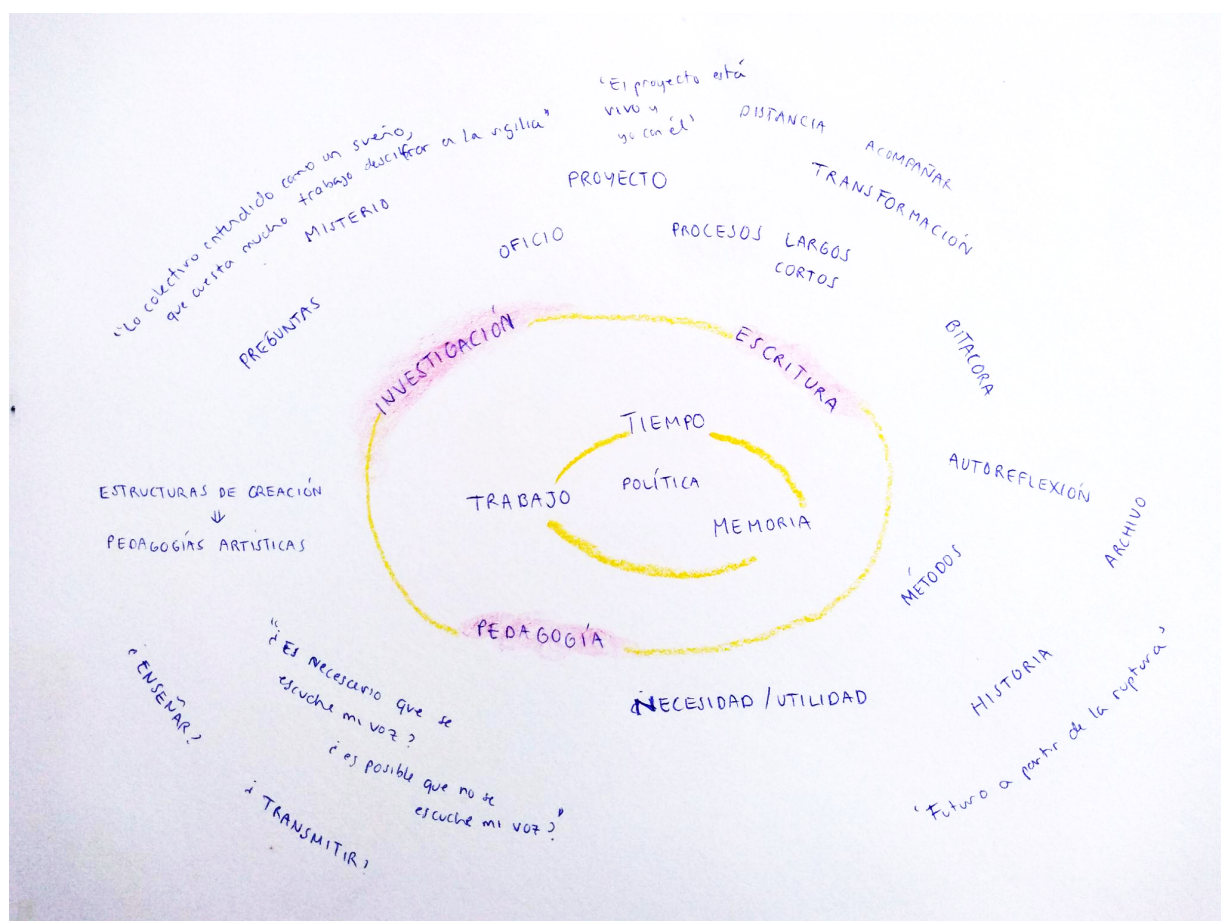 "Lo colectivo entendido como un sueño,
que cuesta mucho trabajo descifrar a la vigilia"
"El proyecto está
vivo y
yo con él"
DISTANCIA
ACOMPAÑAR
TRANSFORMACIÓN
MISTERIO
PROYECTO
OFICIO
PROCESOS LARGOS
CORTOS
PREGUNTAS
INVESTIGACIÓN
ESCRITURA
BITACORA
TIEMPO
POLÍTICA
TRABAJO
MEMORIA
AUTOREFLEXIÓN
ARCHIVO
ESTRUCTURAS DE CREACIÓN
PEDAGOGÍAS ARTÍSTICAS
MÉTODOS
PEDAGOGÍA
HISTORIA
NECESIDAD / UTILIDAD
"Futuro a partir de la ruptura"
¿ENSEÑAR?
"¿Es necesario que se
escuche mi voz?
¿es posible que no se
escuche mi voz?"
¿TRANSMITIR?